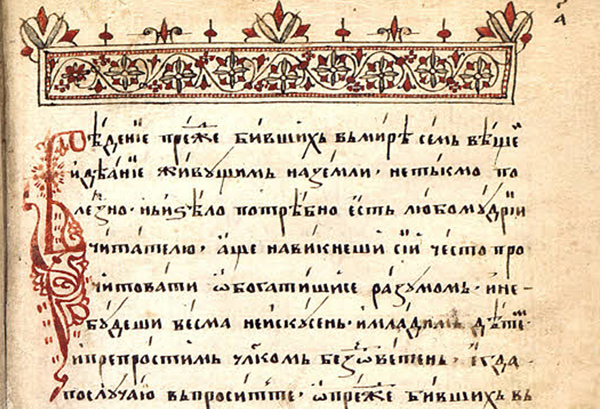 Вѣденіе преⷤже бившихъ въ мирѣ семь вѣщеи
и дѣаніе живущимъ на земли, не тькмо по
леⷥно · нь и ѕѣло потрѣбно есть любомудрїи
читателю · аще навикнеши сїи често про
читовати ѡбогатишисе разумомь · и не‑
будеши весма неискусень · и младимь дѣтеⷨ ·
и препростимь чл҃комь беⷥѿветень, егда
послучаю въпроситъте · ѡ преⷤже бившихъ въ